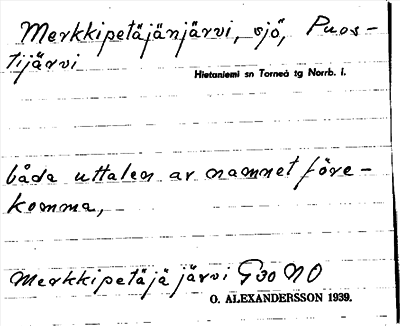 Merkkipetäjänjärvi, sjö, Puos-
tijärvi
Hietaniemi sn Torneå tg Norrb. l.
båda uttalen av namnet före-
komma,
Merkkipetäjäjärvi G30 NO
O. ALEXANDERSSON 1939.